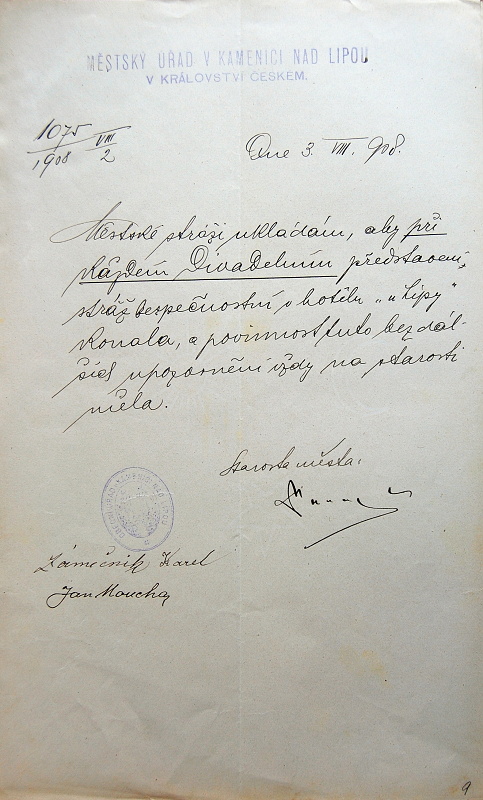 MĚSTSKÝ ÚŘAD V KAMENICI NAD LIPOU
V KRÁLOVSTVÍ ČESKÉM.
1075 VIII
1908 2
Dne 3. VIII. 908.
Městské stráži ukládám, aby při
každém Divadelním představení,
stráž bezpečnostní v hotelu "u Lípy"
konala, a povinnost tuto bez dal-
ších upozornění vždy na starosti
měla.
Starosta města:
Zámečník Karel
Jan Moucha
9